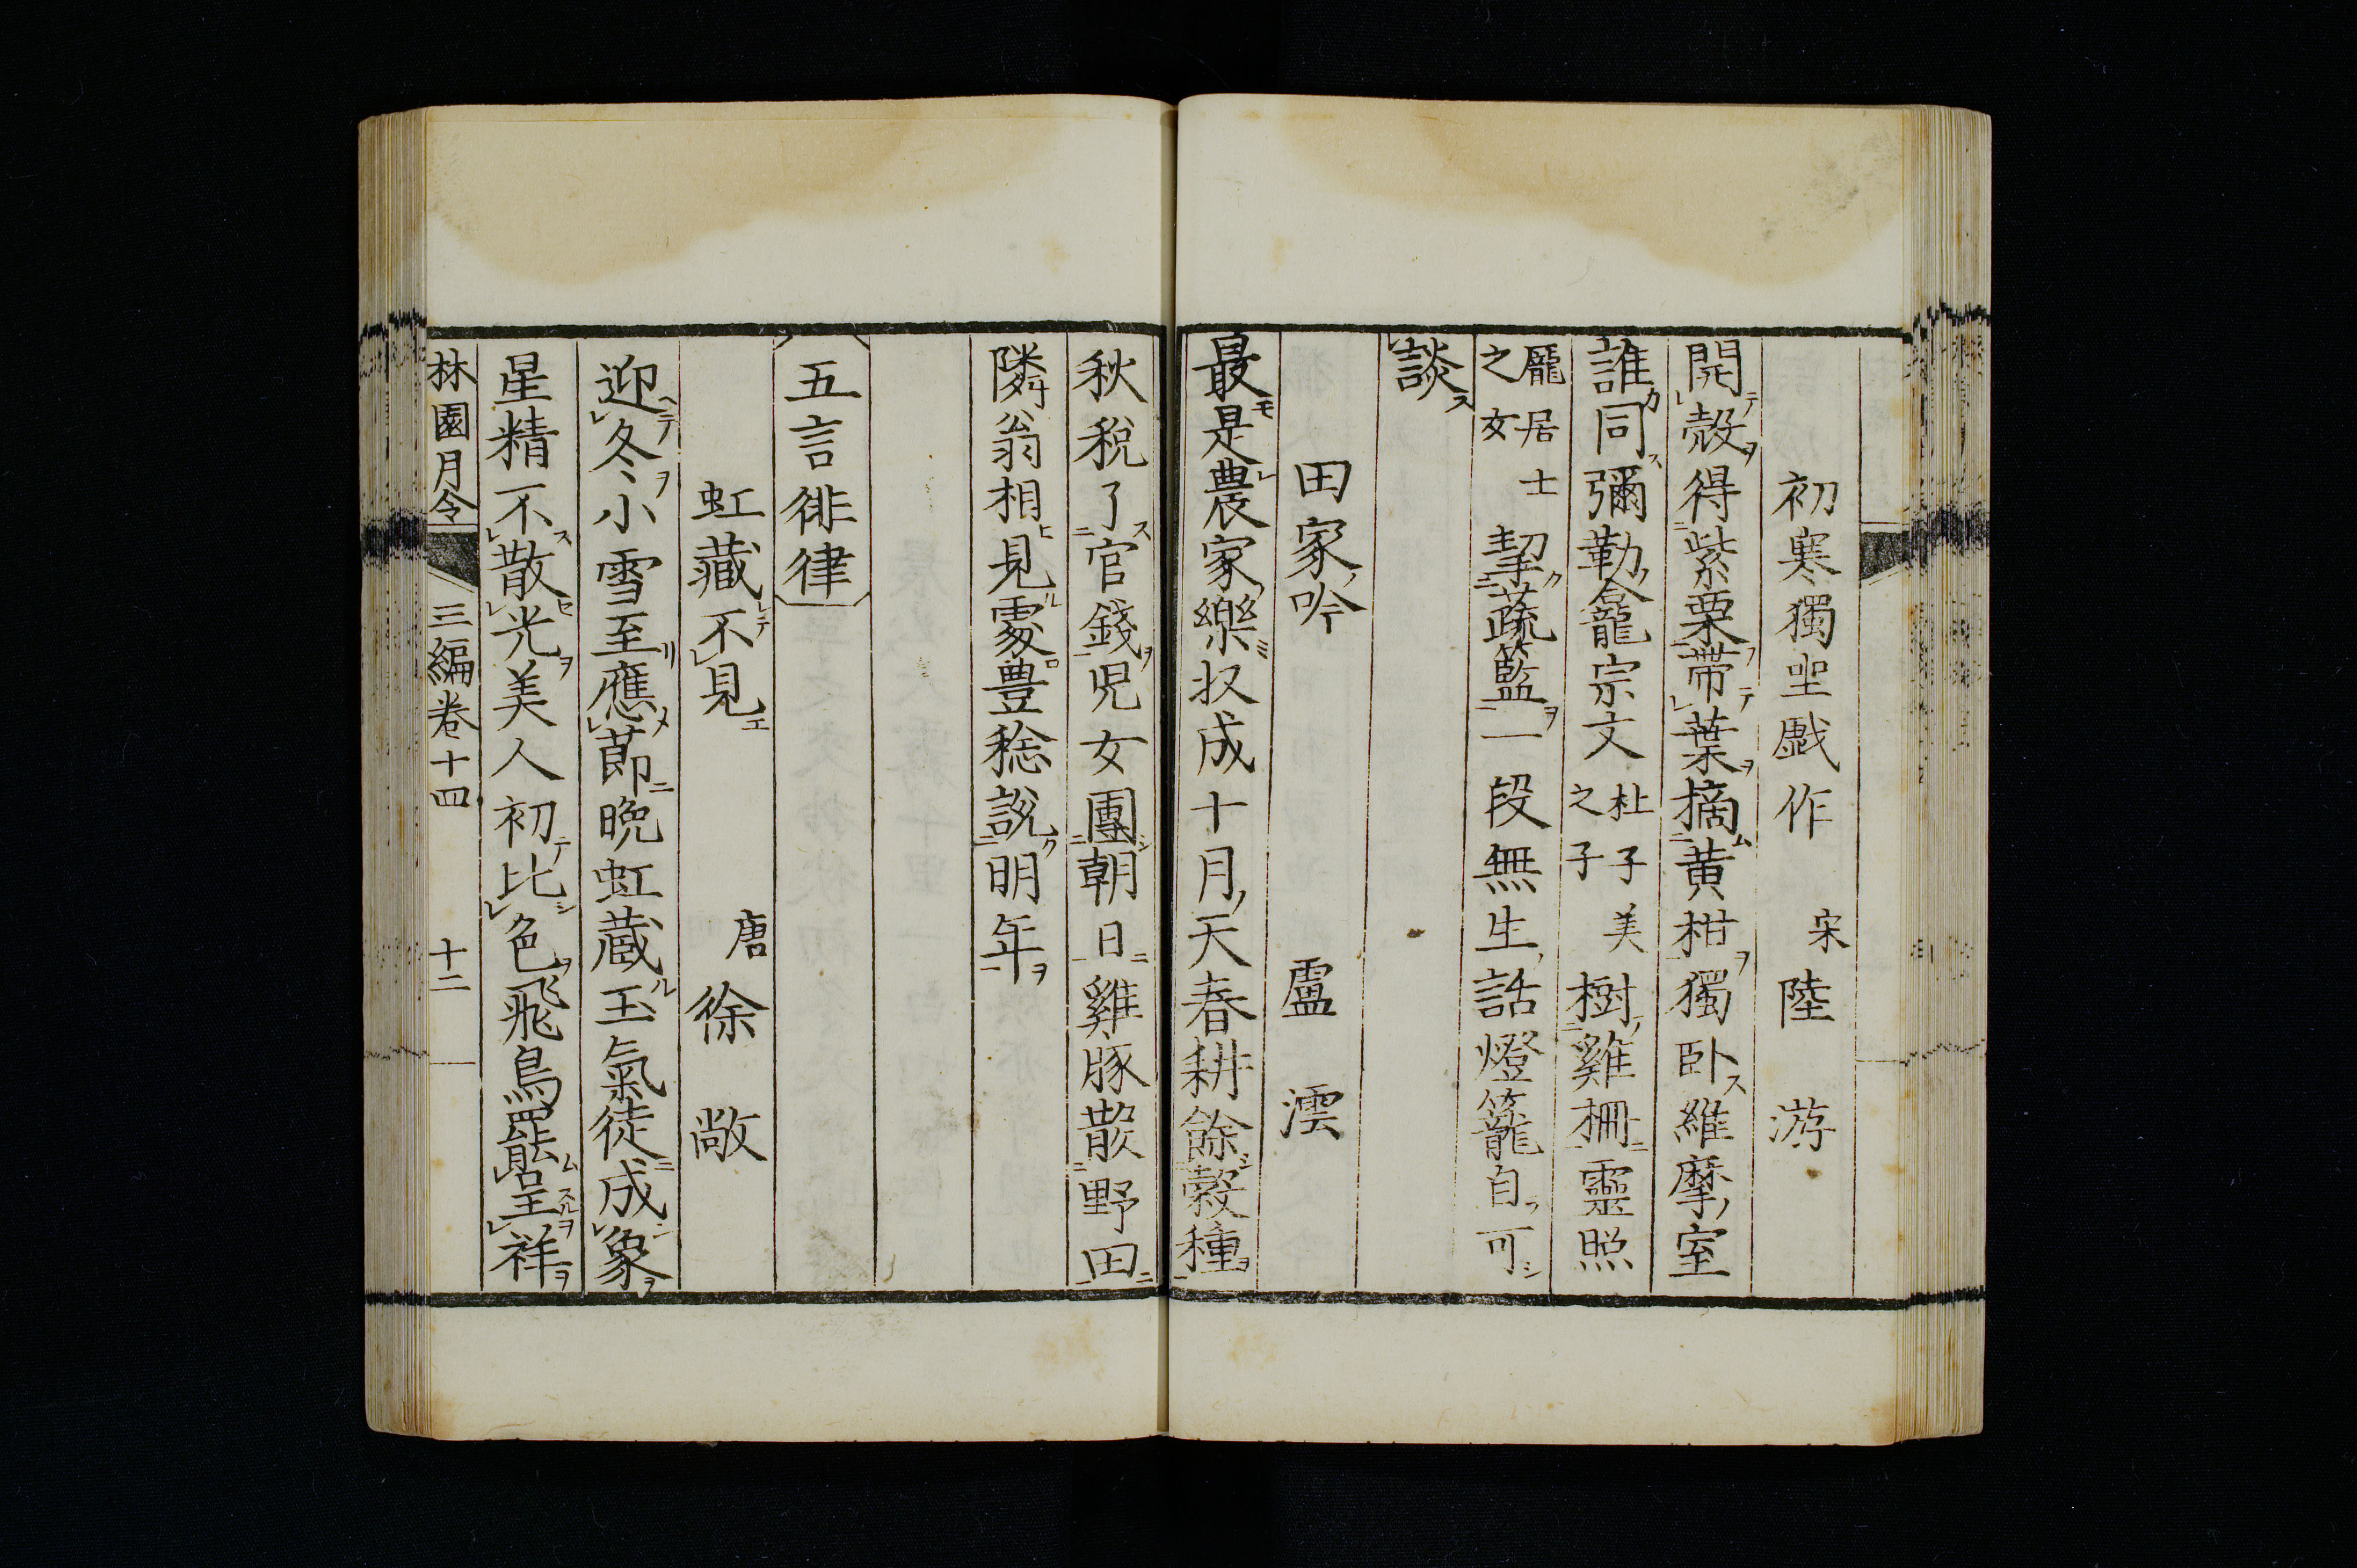 初寒獨坐戯作 宋 陸游
開殼得紫栗帶葉摘黄柑獨卧維摩室
誰同彌勒龕宗文杜子美之子樹雞柵靈照
龐居士之女挈蔬籃一段無生話燈籠自可
談
田家吟 盧澐
最是農家樂収成十月天春耕餘穀種
秋稅了官錢児女團朝日雞豚散野田
隣翁相見處豊稔說明年
五言徘律
虹藏不見 唐 徐敞
迎冬小雪至應莭晩虹蔵玉氣徒成象
星精不散光美人初比色飛鳥罷呈祥
林園月令 三編卷十四 十二